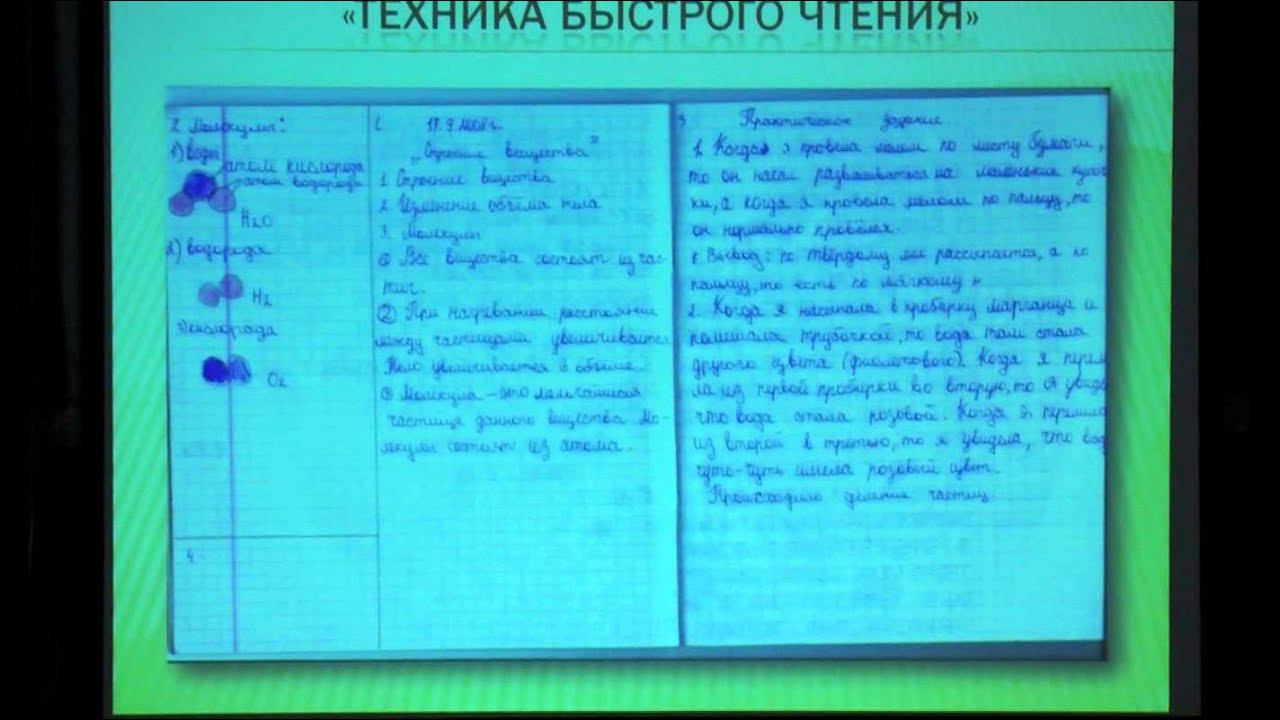 «ТЕХНИКА БЫСТРОГО ЧТЕНИЯ»
2 Молекулы:
1) воды
атом кислорода
атом водорода
H2O
2) водорода
H2
3) кислорода
O2
4.
1.
17.9.2008г.
„Строение вещества”
1. Строение вещества
2. Изменение объёма тела
3. Молекулы
① Все вещества состоят из час-
тиц.
② При нагревании расстояние
между частицами увеличивается
Тело увеличивается в объёме.
③ Молекула - это мельчайшая
частица данного вещества. Мо-
лекулы состоят из атома.
3
Практическое задание.
1. Когда я провела мелом по листу бумаги,
то он начал разваливаться на маленькие кусоч-
ки, а когда я провела мелом по пальцу, то
он нормально провёлся.
Вывод: по твёрдому мел рассыпается, а по
пальцу, то есть по мягкому н
2. Когда я насыпала в пробирку марганца и
помешала трубочкой, то вода там стала
другого цвета (фиолетового). Когда я перели
ла из первой пробирки во вторую, то я увиде
что вода стала розовой. Когда я перелила
из второй в третью, то я увидела, что вод
чуто-чуть имела розовый цвет.
Происходило деление частиц.